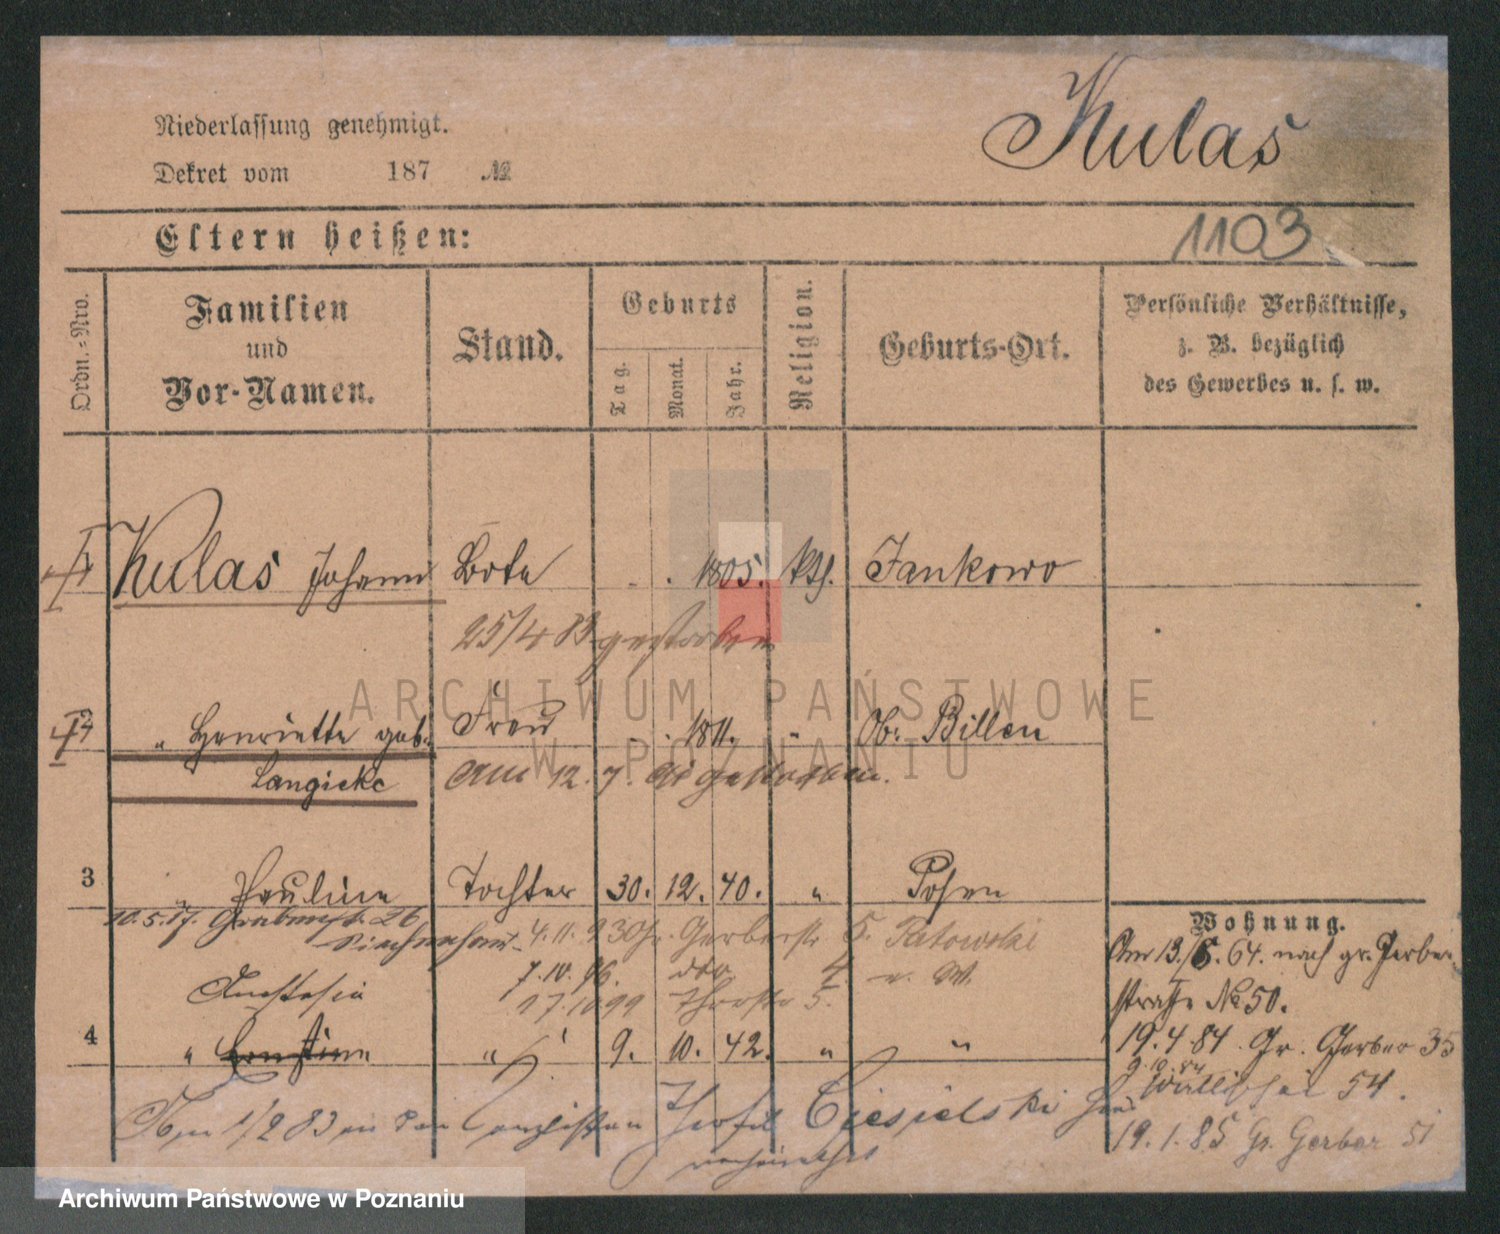 Niederlassung genehmigt.
Kulas
Dekret vom 187 №
1103
Eltern heißen:
Ordn.-Nro.
Familien
und
Vor-Namen.
Stand.
Geburts
Tag.
Monat.
Jahr.
Religion.
Geburts-Ort.
Persönliche Verhältnisse,
z. B. bezüglich
des Gewerbes u. s. w.
Kulas Johann Bote 1805. kth. Jankowo
25/4 83 gestorben
2 " Henriette geb. Frau 1811. " Ob. Billen
Langicke am 12. 7. gestorben.
3 " Pauline Tochter 30. 12. 40. " Posen
10. 5. 87. Grabenstr. 26 4. 11. 93 Gr. Gerberstr 5. Ratowski
7. 10. 96. dto 4 v. W.
17. 10 99 5.
Anastasia
4 " Ernstine " 9. 10. 42. " "
Am 1/2 83 an den Ciesielski
verheirathet
Wohnung.
Am 13./6. 64. nach gr. Gerber-
straße No 50.
19. 4 84. Gr. Gerber 35
9. 10. 84
Wallischei 54.
19. 1. 85 Gr. Gerber 51
ARCHIWUM PAŃSTWOWE
W POZNANIU
Archiwum Państwowe w Poznaniu